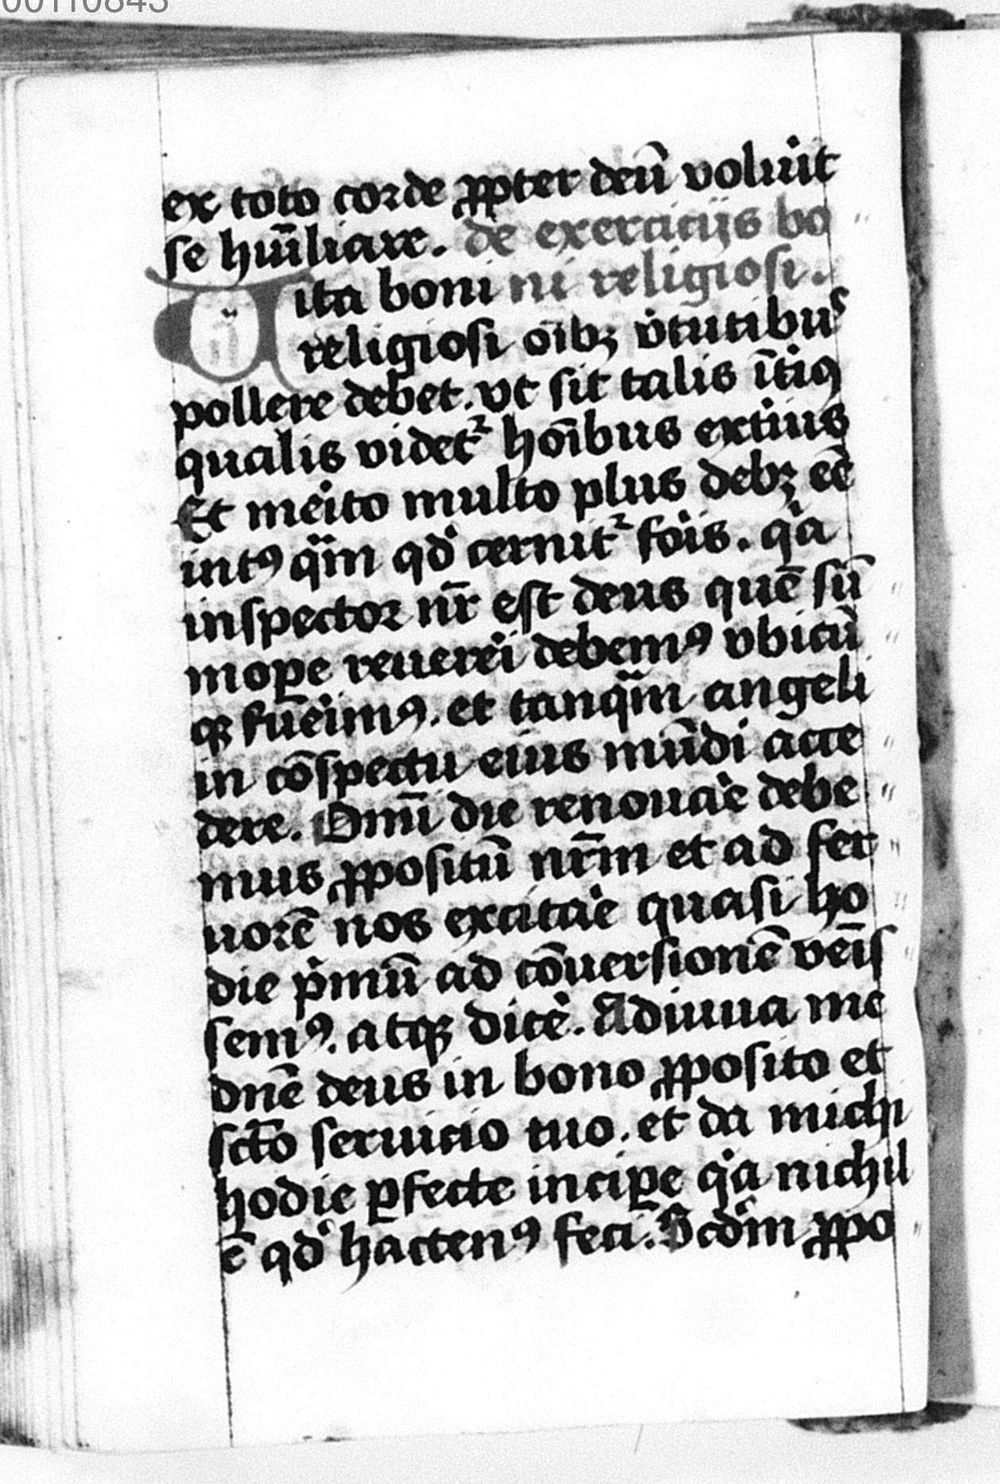 00110843
ex toto corde ꝓpter deū voluͥt
se hūiliare. de exercicijs bo
Uita boni ni religiosi.
religiosi oībꝫ vͥtutibus
pollere debet. vt sit talis īteͥiꝰ
qualis videtᷣ hoībus exteͥius
Et meͥito multo plus debꝫ eē
intꝰ qͣm qdͦ cernitᷣ foͥis. qͥa
inspector nr̄ est deus quē sū
moꝑe reuereͥi debemꝰ vbicū
qꝫ fueͥimꝰ. et tanqͣm angeli
in cōspectu eius mūdi acce
dere. Omī die renouaͤe debe
mus ꝓpositū nr̄m et ad fer
uorē nos excitaͤe quasi ho
die pͥmū ad cōuersionē veīs
semꝰ. atqꝫ diceͤ. Adiuua me
dn̄e deus in bono ꝓposito et
sct̄o seruicio tuo. et da michi
hodie ꝑfecte inciꝑe qͥa nichil
ē qdͦ hactenꝰ feci. Scdm̄ ꝓpo